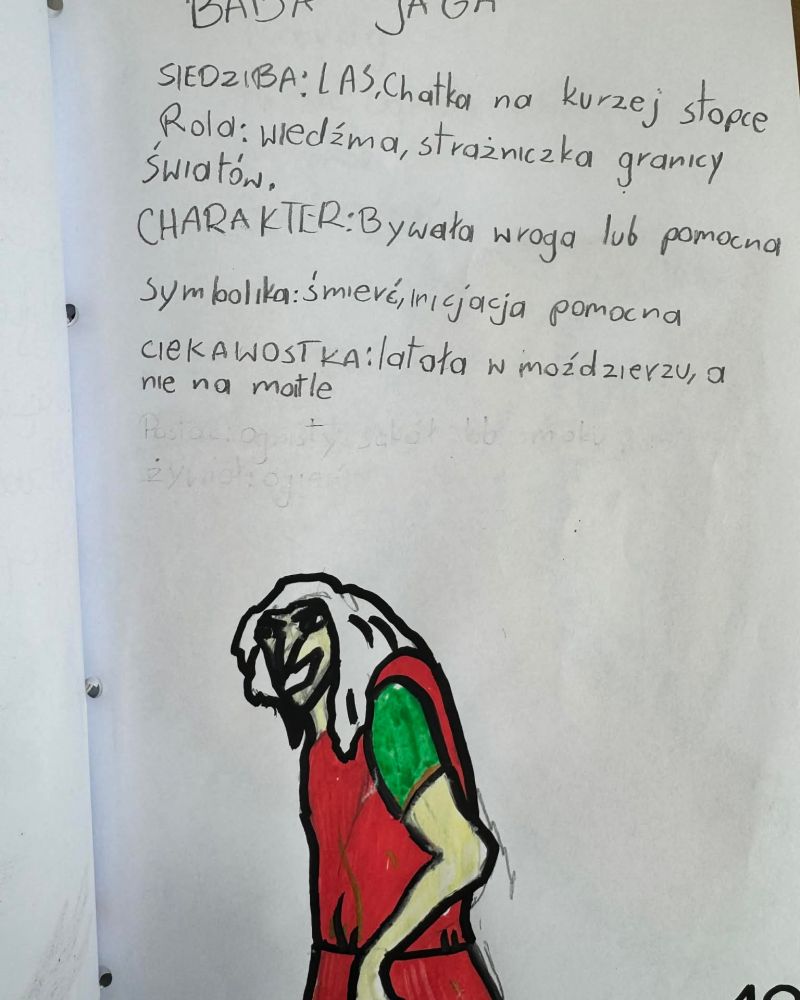 BABA JAGA
SIEDZIBA: LAS, Chatka na kurzej stopce
Rola: wiedźma, strażniczka granicy
światów.
CHARAKTER: Bywała wroga lub pomocna
Symbolika: śmierć, inicjacja pomocna
CIEKAWOSTKA: latała w moździerzu, a
nie na miotle